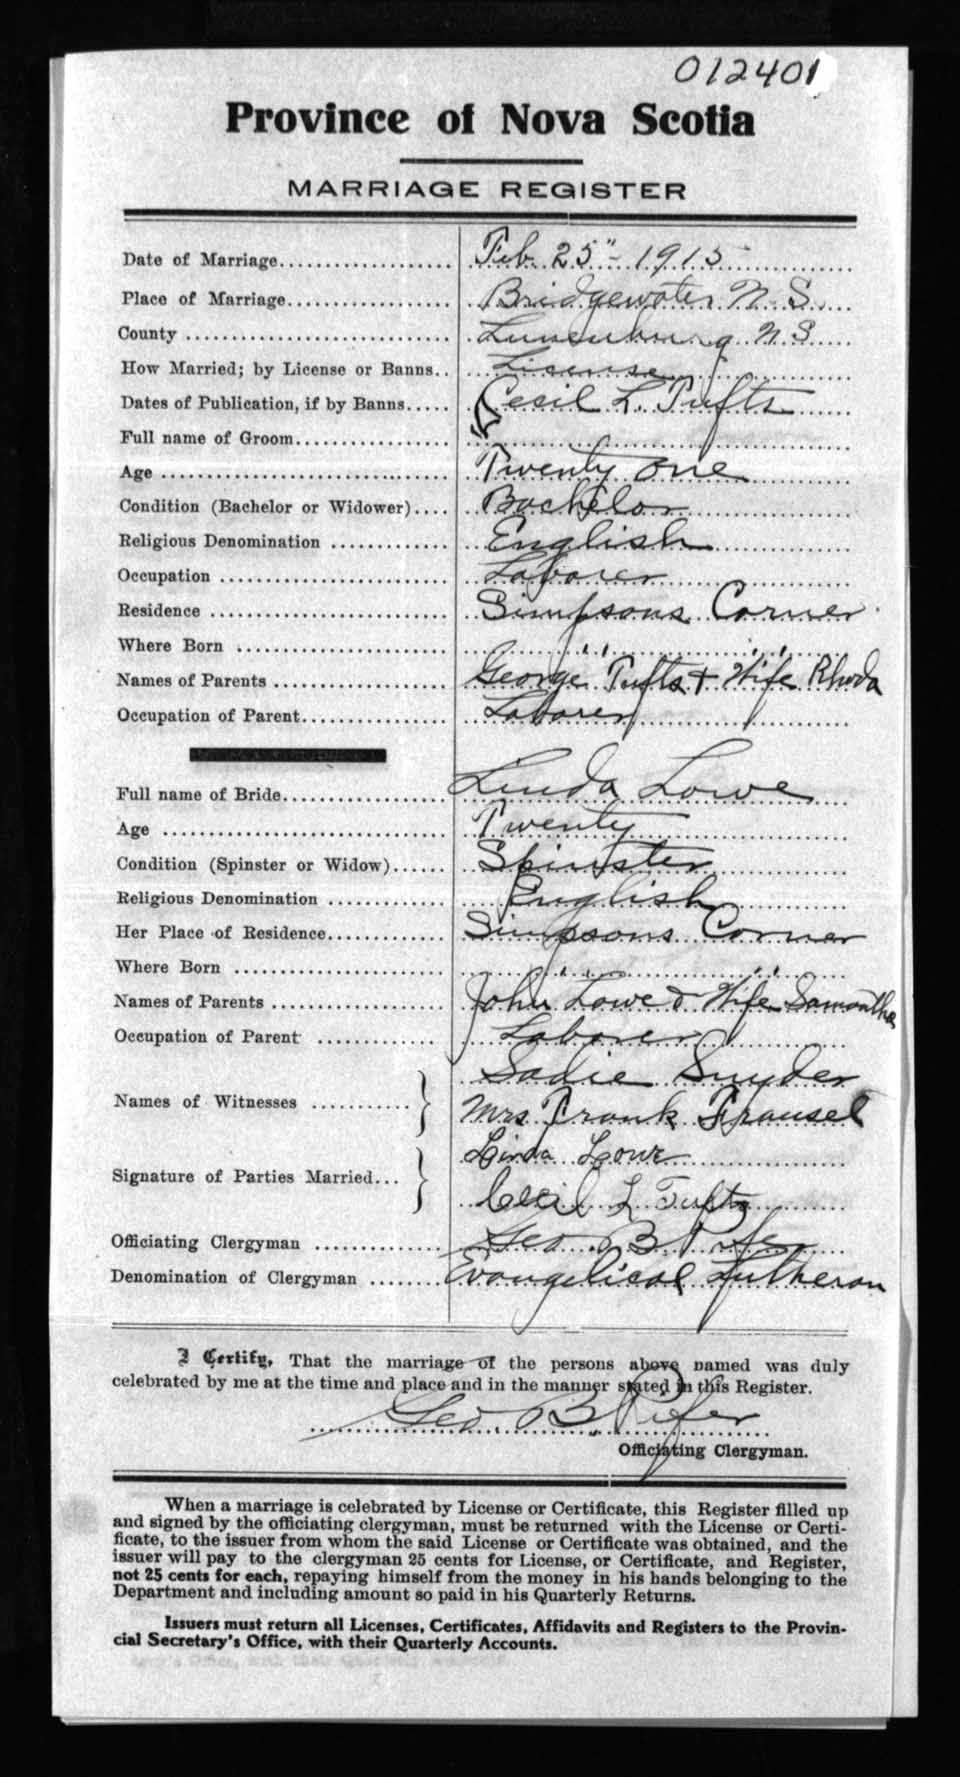 012401
Province of Nova Scotia
MARRIAGE REGISTER
Date of Marriage.................... Feb. 25" - 1915
Place of Marriage................... Bridgewater N. S.
County ............................. Lunenbourg N S
How Married; by License or Banns.. License
Dates of Publication, if by Banns..... Cecil L. Tufts
Full name of Groom..................
Age ................................ Twenty one
Condition (Bachelor or Widower).... Bachelor
Religious Denomination ............. English
Occupation ......................... Laborer
Residence .......................... Simpsons Corner
Where Born ........................ " "
Names of Parents ................... George Tufts + Wife Rhoda
Occupation of Parent................ Laborer
Full name of Bride.................. Linda Lowe
Age ................................ Twenty
Condition (Spinster or Widow)...... Spinster
Religious Denomination ............. English
Her Place of Residence.............. Simpsons Corner
Where Born ........................ " "
Names of Parents ................... John Lowe & Wife Samantha
Occupation of Parent ............... Laborer
Sadie Snyder
Names of Witnesses ........... } Mrs Frank
Linda Lowe
Signature of Parties Married... } Cecil L Tufts
Officiating Clergyman .............. Geo. B.
Denomination of Clergyman ....... Evangelical Lutheran
I Certify, That the marriage of the persons above named was duly
celebrated by me at the time and place and in the manner stated in this Register.
Geo. B.
Officiating Clergyman.
When a marriage is celebrated by License or Certificate, this Register filled up
and signed by the officiating clergyman, must be returned with the License or Certi-
ficate, to the issuer from whom the said License or Certificate was obtained, and the
issuer will pay to the clergyman 25 cents for License, or Certificate, and Register,
not 25 cents for each, repaying himself from the money in his hands belonging to the
Department and including amount so paid in his Quarterly Returns.
Issuers must return all Licenses, Certificates, Affidavits and Registers to the Provin-
cial Secretary's Office, with their Quarterly Accounts.